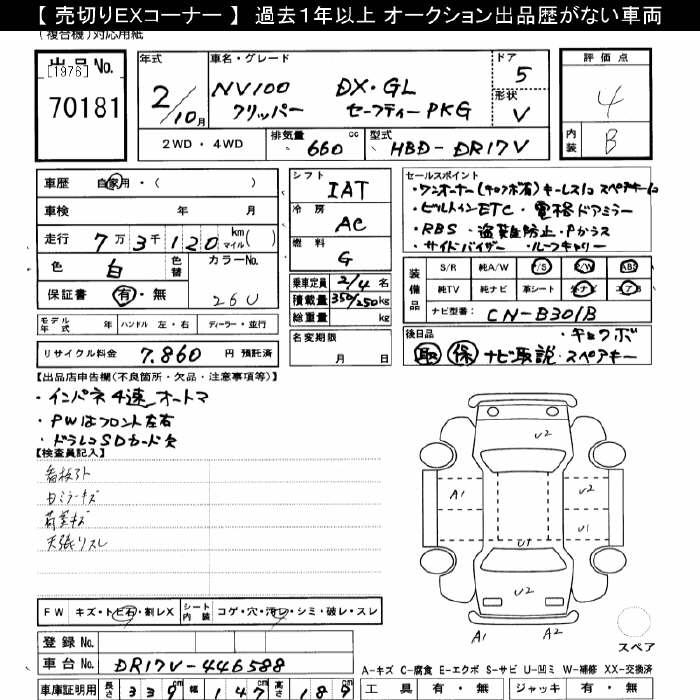 【 売切りEXコーナー 】 過去1年以上 オークション出品歴がない車両
(複合機)対応用紙
出品 No.
[1976]
70181
年式
2/10月
車名・グレード
NV100 DX・GL
クリッパー セーフティーPKG
ドア
5
形状
V
2WD・4WD
排気量
660
cc
型式
HBD-DR17V
評価点
4
内装
B
車歴 自家用・( )
車検 年 月
走行 7万3千120 km マイル( )
色 白 色替 カラーNo.
保証書 有・無 26U
シフト
IAT
冷房
AC
燃料
G
乗車定員 2/4 名
積載量 350/250 kg
総重量 kg
セールスポイント
・ワンオーナー(キロクボ有) キーレス1コ スペアキー1コ
・ビルトインETC・電格ドアミラー
・RBS・盗難防止・Pガラス
・サイドバイザー・ルーフキャリー
装備品
S/R 純A/W P/S P/W ABS
純TV 純ナビ 革シート 社ナビ エアB
ナビ型番: CN-B301B
モデル年式 年 ハンドル 左・右 ディーラー・並行
リサイクル料金 7.860 円 預託済
名変期限
月 日
後日品
・キロクボ
取 保 ナビ取説・スペアキー
【出品店申告欄(不良箇所・欠品・注意事項等)】
・インパネ4速 オートマ
・PWはフロント左右
・ドラレコSDカード欠
【検査員記入】
看板アト
白ミラーキズ
荷室キズ
天張リスレ
U2
A1
U2
U1
U1
U2
A1
A2
スペア
FW キズ・トビ石・割レX シート内装 コゲ・穴・汚レ・シミ・破レ・スレ
登録 No.
車台 No. DR17V-446588
車庫証明用 長さ 339 cm 幅 147 cm 高さ 189 cm
A-キズ C-腐食 E-エクボ S-サビ U-凹ミ W-補修 XX-交換済
工具 有・無 ジャッキ 有・無